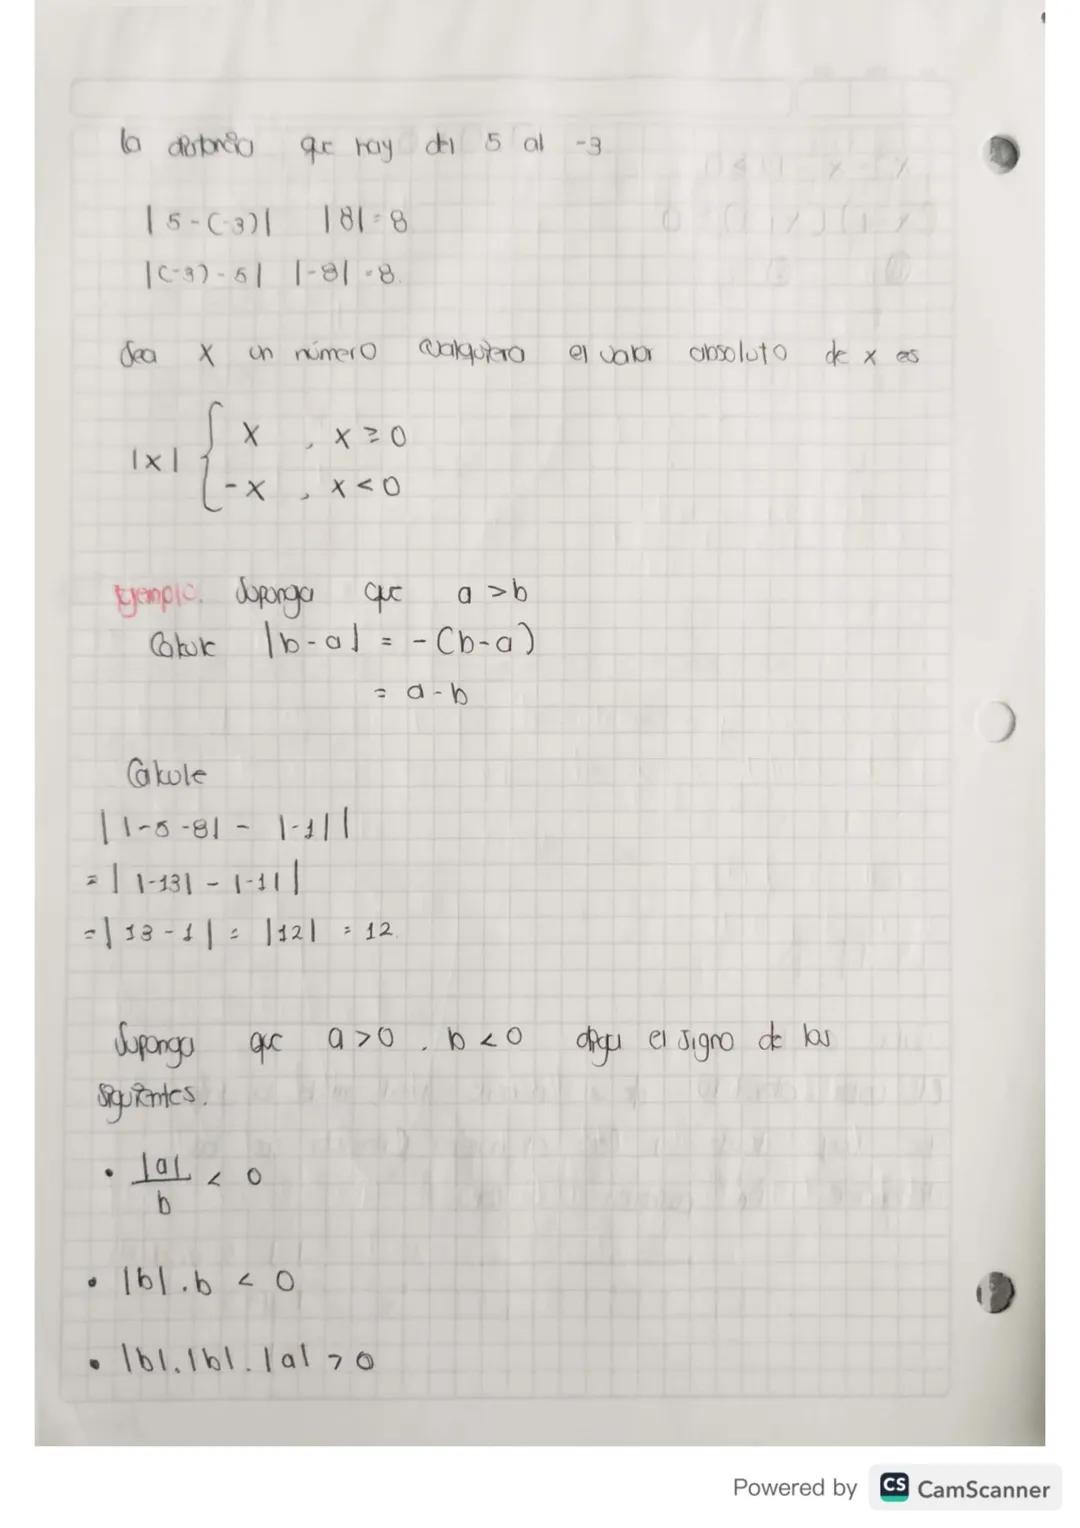 la distancia que hay del 5 al -3
|5-(-3)| |8|=8
|(-3)-5| |-8|=8.
Sea x un número cualquiera el valor absoluto de x es
|x| { x , x ≥ 0
-x , x < 0
Ejemplo. Suponga que a > b
Calcule |b-a| = -(b-a)
= a-b
Calcule
| |-5-8| - |-1| |
= | |-13| - |-1| |
= | 13-1 | = |12| = 12.
Suponga que a > 0 , b < 0 diga el signo de las
siguientes.
• |a|/b < 0
• |b|.b < 0
• |b|.|b|.|a| > 0
Powered by CS CamScanner